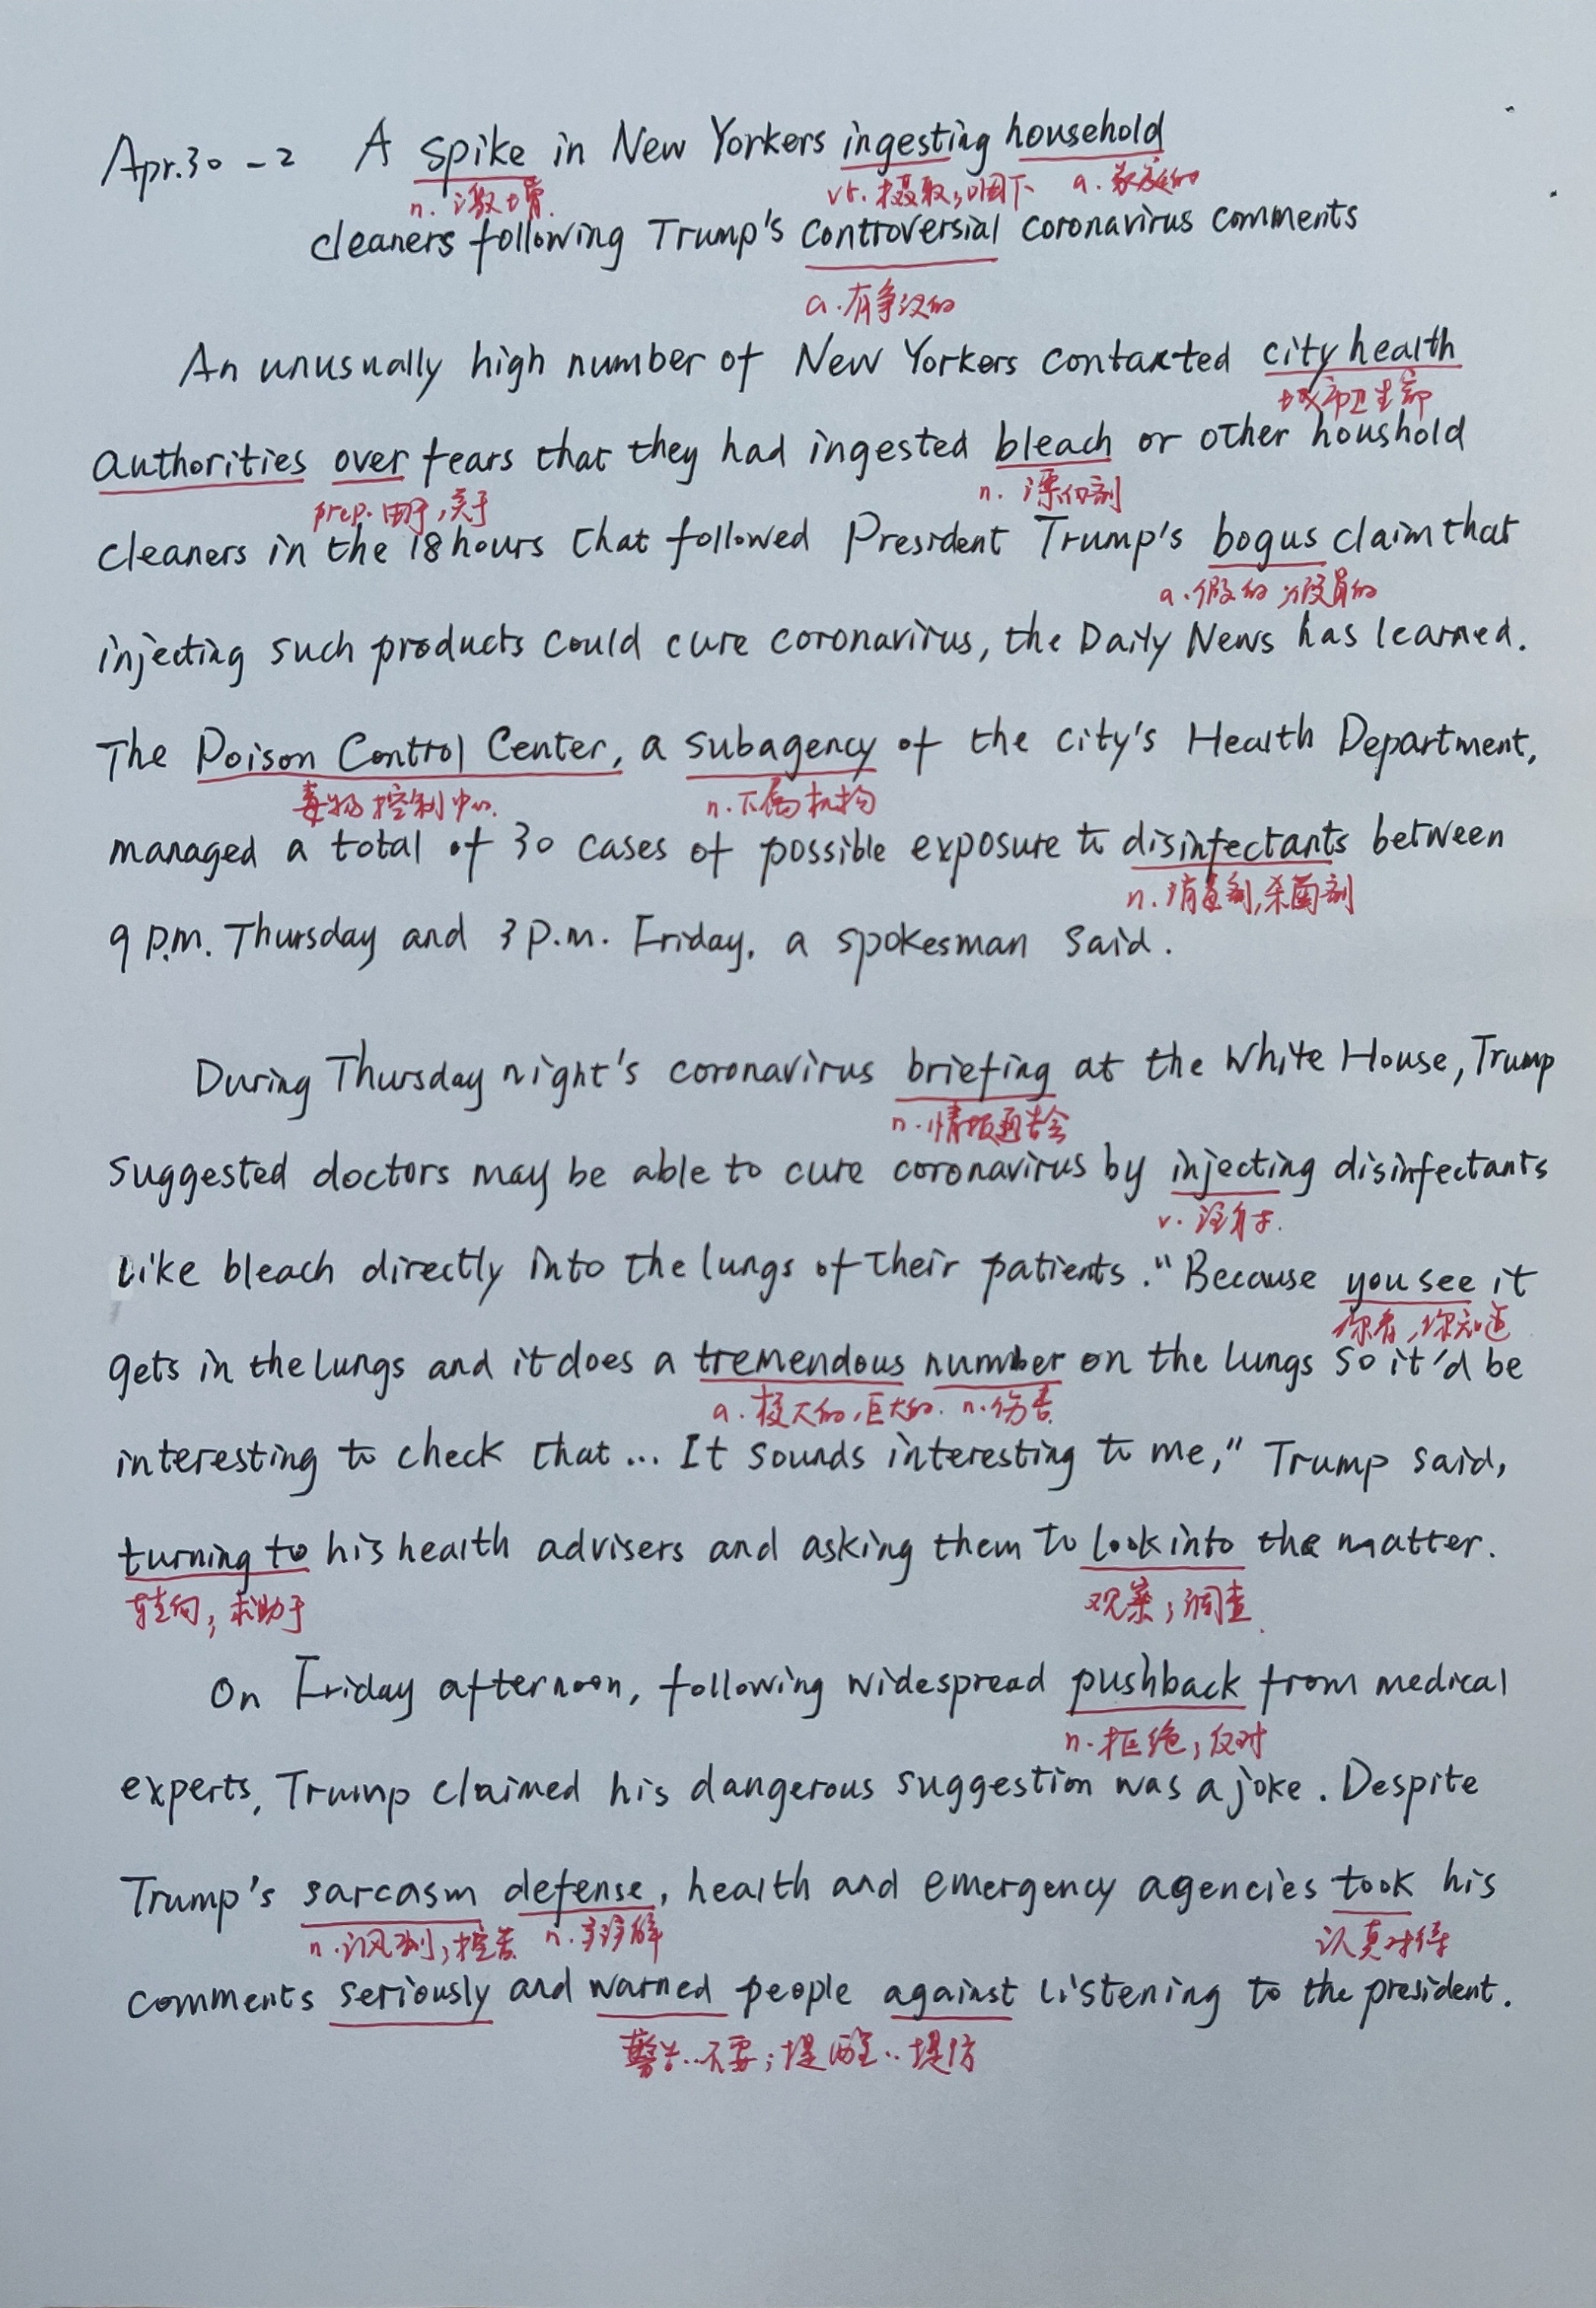 Apr.30 -2 A spike in New Yorkers ingesting household
n. 激增. vt. 摄取;咽下 a. 家庭的
cleaners following Trump's controversial coronavirus comments
a. 有争议的
An unusually high number of New Yorkers contacted city health
城市卫生部
authorities over fears that they had ingested bleach or other houshold
prep. 由于,关于 n. 漂白剂
cleaners in the 18 hours that followed President Trump's bogus claim that
a. 假的;假冒的
injecting such products could cure coronavirus, the Daily News has learned.
The Poison Control Center, a subagency of the city's Health Department,
毒物控制中心. n. 下属机构
managed a total of 30 cases of possible exposure to disinfectants between
n. 消毒剂,杀菌剂
9 p.m. Thursday and 3 p.m. Friday, a spokesman said.
During Thursday night's coronavirus briefing at the White House, Trump
n. 情报通告会
suggested doctors may be able to cure coronavirus by injecting disinfectants
v. 注射.
like bleach directly into the lungs of their patients. "Because you see it
你看,你知道
gets in the lungs and it does a tremendous number on the lungs so it'd be
a. 极大的,巨大的. n. 伤害
interesting to check that... It sounds interesting to me," Trump said,
turning to his health advisers and asking them to look into the matter.
转向;求助于 观察;调查.
On Friday afternoon, following widespread pushback from medical
n. 拒绝;反对
experts, Trump claimed his dangerous suggestion was a joke. Despite
Trump's sarcasm defense, health and emergency agencies took his
n. 讽刺;挖苦 n. 辩解 认真对待
comments seriously and warned people against listening to the president.
警告..不要;提醒..提防